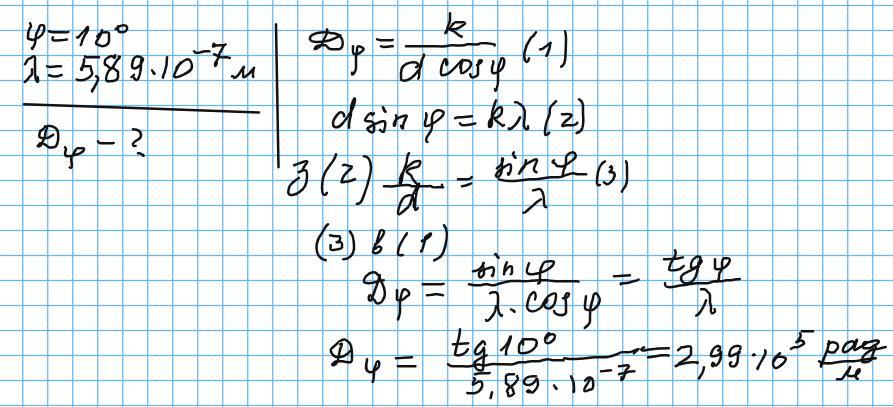 φ=10°
λ=5,89·10⁻⁷ м
Dφ – ?
Dφ = k/(d cosφ) (1)
d sin φ = kλ (2)
З (2) k/d = sin φ/λ (3)
(3) в (1)
Dφ = sin φ/(λ·cosφ) = tg φ/λ
Dφ = tg 10°/(5,89·10⁻⁷) = 2,99·10⁵ рад/м